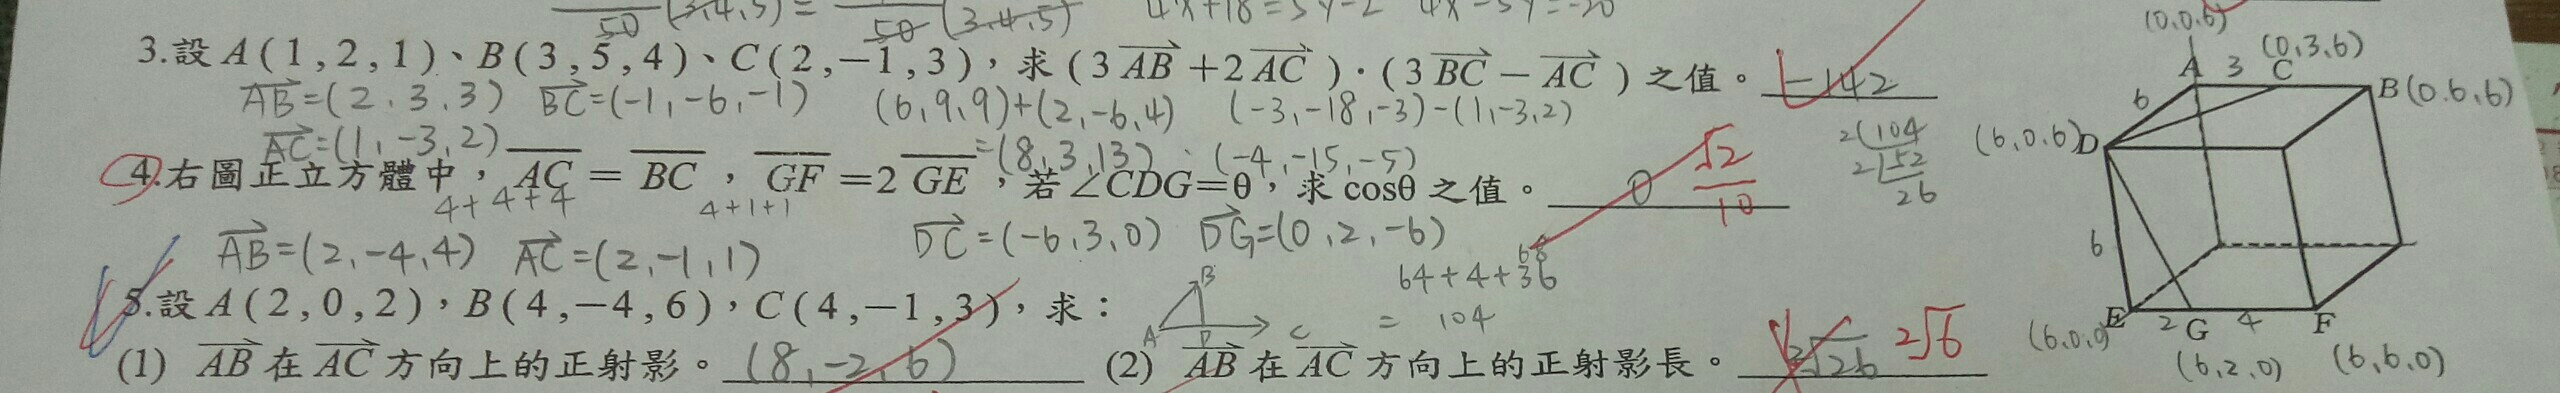 50 (3,4,5) = 50 (3,4,5) 4x+18=5y-2 4x-5y=-20
3.設 A(1,2,1)、B(3,5,4)、C(2,-1,3),求 (3AB+2AC)·(3BC-AC) 之值。 -142
AB=(2,3,3) BC=(-1,-6,-1) (6,9,9)+(2,-6,4) (-3,-18,-3)-(1,-3,2)
AC=(1,-3,2) =(8,3,13)·(-4,-15,-5)
4.右圖正立方體中,AC=BC,GF=2GE,若∠CDG=θ,求 cosθ 之值。 0 √2/10
4+4+4 4+1+1 DC=(-6,3,0) DG=(0,2,-6)
AB=(2,-4,4) AC=(2,-1,1)
5.設 A(2,0,2),B(4,-4,6),C(4,-1,3),求:
A B D C
64+4+36
= 104
2 104
2 52
26
(1) AB 在 AC 方向上的正射影。 (8,-2,6) (2) AB 在 AC 方向上的正射影長。 2√26 2√6
(0,0,6)
A 3 C (0,3,6)
6 B(0,6,6)
(6,0,6)D
6
(6,0,0) E 2 G 4 F
(6,2,0) (6,6,0)